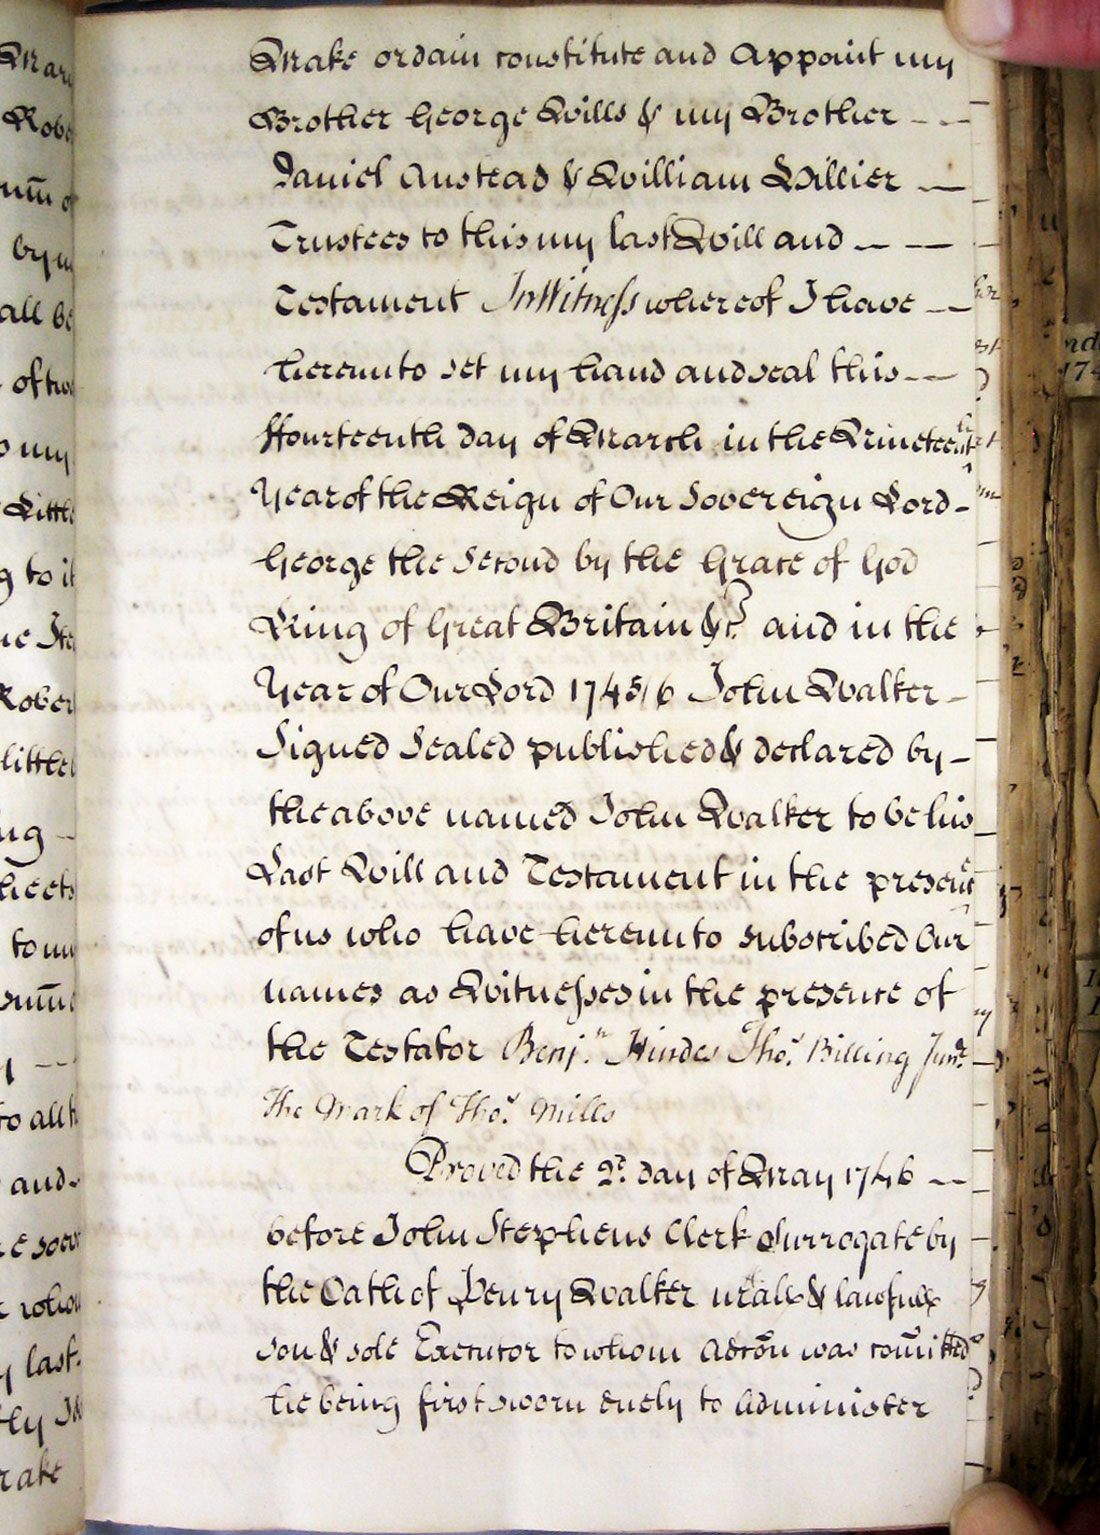 Make ordain constitute and Appoint my
Brother George Wills & my Brother - - -
Daniel Anstead & William Hillier —
Trustees to this my last Will and — — —
Testament In Witness whereof I have — —
hereunto set my hand and seal this - —
ffourteenth day of March in the Nineteenth
Year of the Reign of Our Sovereign Lord -
George the Second by the Grace of God
King of Great Britain &c. and in the
Year of Our Lord 1745/6 John Walker -
Signed Sealed published & declared by -
the above named John Walker to be his
Last Will and Testament in the presence
of us who have hereunto subscribed Our
names as Witnesses in the presence of
the Testator Benj.n Hindes Tho.s Billing Jun.r
The Mark of Tho.s Mills
Proved the 2.d day of May 1746 — —
before John Stephens Clerk Surrogate by
the Oath of Henry Walker nrall & lawfull
son & sole Executor to whom Adcõn was com̃itted
he being first sworn duely to Administer